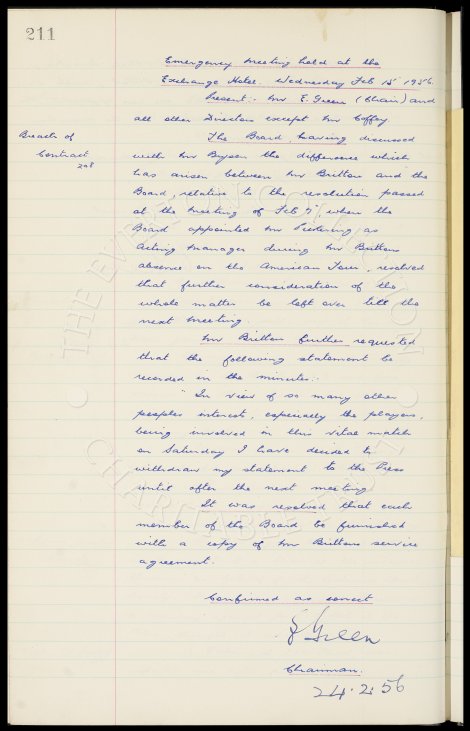 211
Emergency Meeting held at the
Exchange Hotel. Wednesday Feb 15 1956.
Present: Mr E. Green (Chair) and
all other Directors except Mr Coffey
Breach of
Contract
208
The Board, having discussed
with Mr Bysen the difference which
has arisen between Mr Britton and the
Board, relative to the resolution passed
at the meeting of Feb 7", when the
Board appointed Mr Pickering as
Acting Manager during Mr Brittons
absence on the American Tour, resolved
that further consideration of the
whole matter be left over till the
next meeting.
Mr Britton further requested
that the following statement be
recorded in the minutes:.
"In view of so many other
peoples interests, especially the players,
being involved in this vital match
on Saturday I have decided to
withdraw my statement to the Press
until after the next meeting
It was resolved that each
member of the Board be furnished
with a copy of Mr Brittons service
agreement.
Confirmed as correct
E Green
Chairman.
24.2.56
THE EVERTON COLLECTION
CHARITABLE TRUST